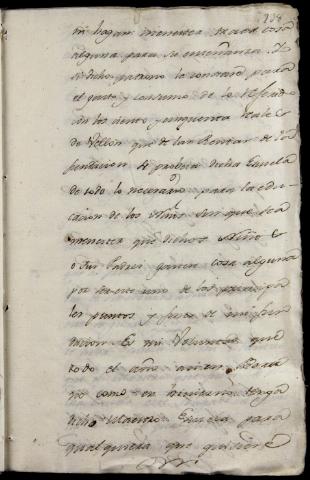 ni hagan menester traer cosa
alguna para su enseñanza. Y
si dicho patrono la comprara para
el gasto y consumo de lo referido
con los ciento y cinquenta reales
de Vellon que de las Rentas de la
fundacion se probea dicha Escuela
de todo lo necesario para la edu
cacion de los Niños sin que sea
menester que dichos Niños
o sus Padres gasten cosa alguna
por ser este uno de los principa
les puntos y fines de mi fun
dacion Es mi Voluntad que
todo el año asi en Vera
no como en hivierno tenga
dicho Maestro Escuela para
qualquiera que quisiere